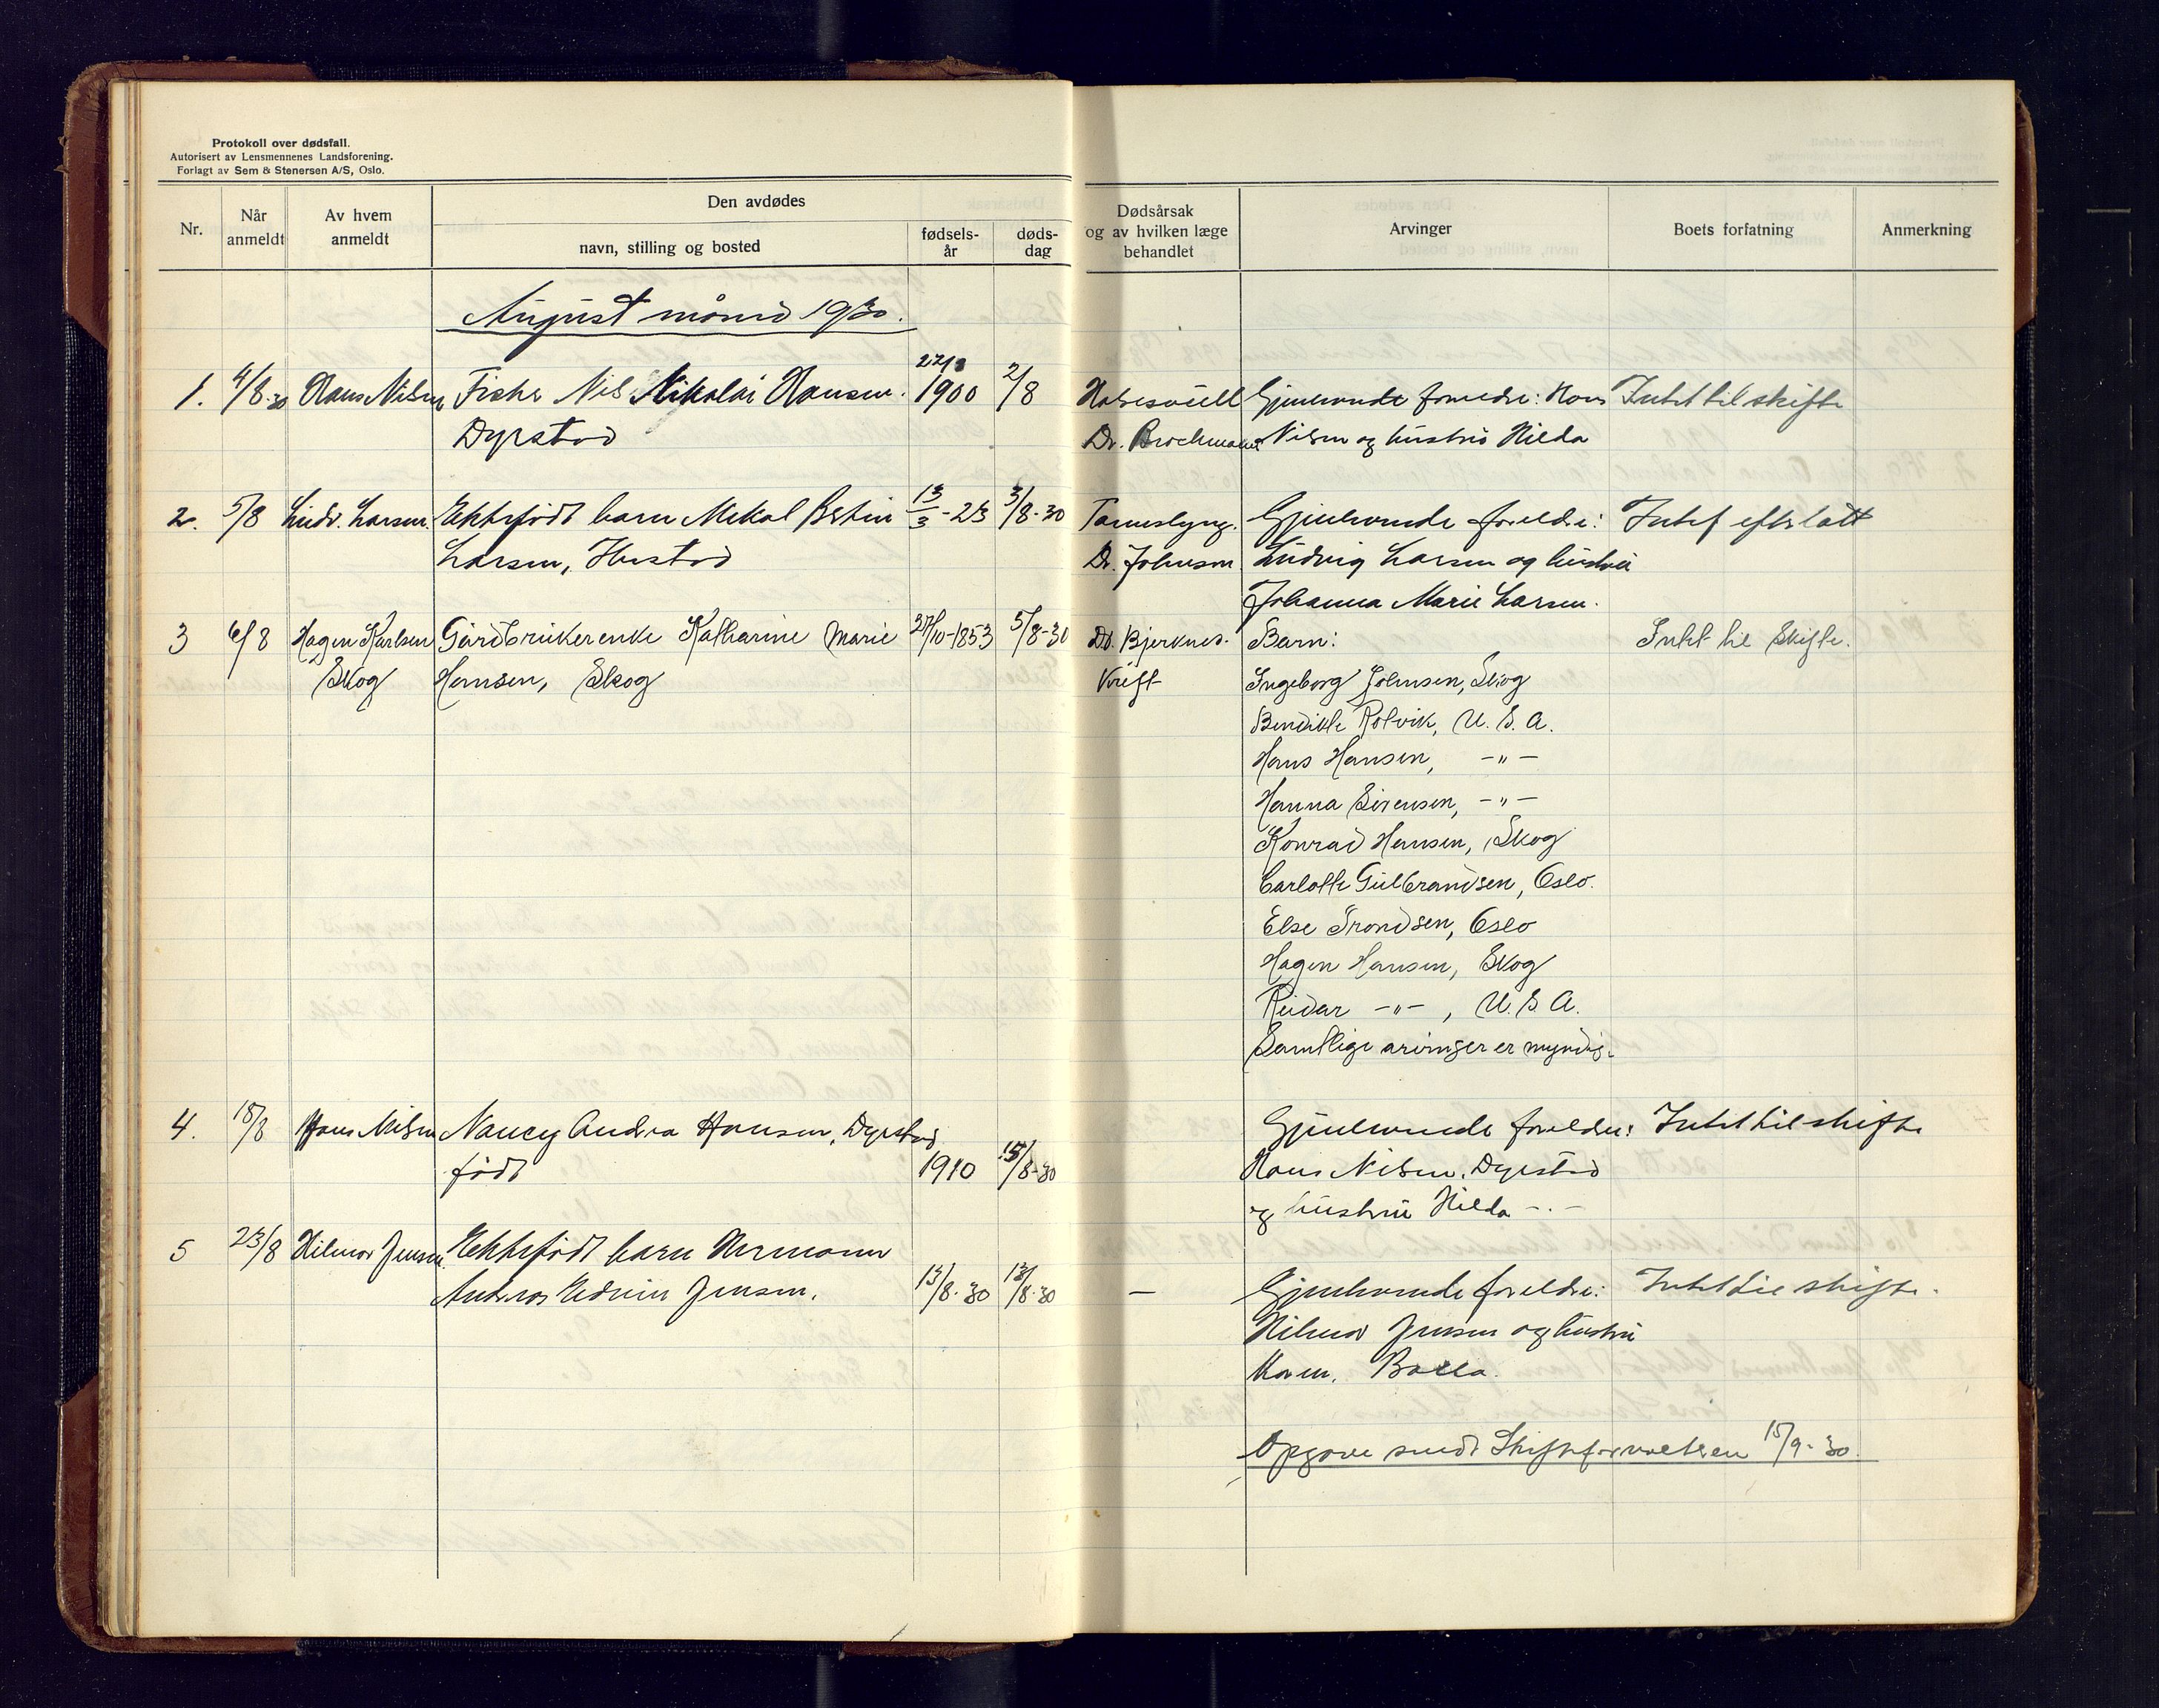 Protokoll over dødsfall.
Autorisert av Lensmennenes Landsforening.
Forlagt av Sem & Stenersen A/S, Oslo.
Nr.
Når anmeldt
Av hvem anmeldt
Den avdødes
navn, stilling og bosted
fødsels-år
døds-dag
Dødsårsak og av hvilken læge behandlet
Arvinger
Boets forfatning
Anmerkning
August måned 1930.
1. 4/8.30 Hans Nilsen Fisker Nils Nikolai Hansen. 1900 2/8 Gjenlevende foreldre: Hans Intet til skifte
Dyrstad Dr. Brochmann Nilsen og hustru Hilda
2. 5/8 Ludv. Larsen. Ektefødt barn Mikal Larsen 13/3-23 3/8-30 Gjenlevende foreldre: Intet efterlatt
Larsen, Hustad Dr. Johnson Ludvig Larsen og hustru
Johanna Marie Larsen.
3 6/8 Hagen Karlsen Gårdbrukerenke Katharine Marie 27/10-1853 5/8-30 Dr. Bjerknes. Barn: Intet til Skifte.
Skog Hansen, Skog Kreft Ingeborg Johnsen, Skog
Bendikte Rolvik, U.S.A.
Hans Hansen, -"-
Hanna Sørensen, -"-
Konrad Hansen, Skog
Carlotte Gulbrandsen, Oslo.
Else Trondsen, Oslo
Hagen Hansen, Skog
Reidar -"-, U.S.A.
Samtlige arvinger er myndig.
4. 18/8 Hans Nilsen Nancy Andrea Hansen, Dyrstad Gjenlevende foreldre: Intet til skifte
født 1910 15/8-30 Hans Nilsen, Dyrstad
og hustru Hilda -.-
5 23/8 Hilmar Jensen. Ektefødt barn Hermann
Andreas Edvin Jensen. 13/8.30 13/8.30 - Gjenlevende foreldre: Intet til skifte.
Hilmar Jensen og hustru
Karen.
Opgave sendt Skifteforvalteren 15/9-30.